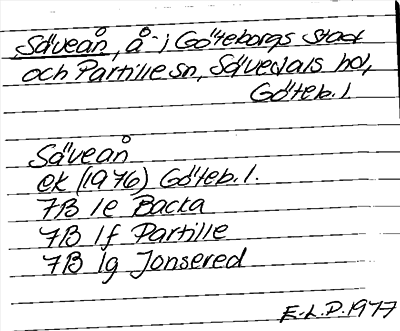 Säveån, å i Göteborgs stad
och Partille sn, Sävedals hd,
Göteb. l.
Säveån
ek (1976) Göteb. l.
7B 1e Backa
7B 1f Partille
7B 1g Jonsered
E.L.P. 1977